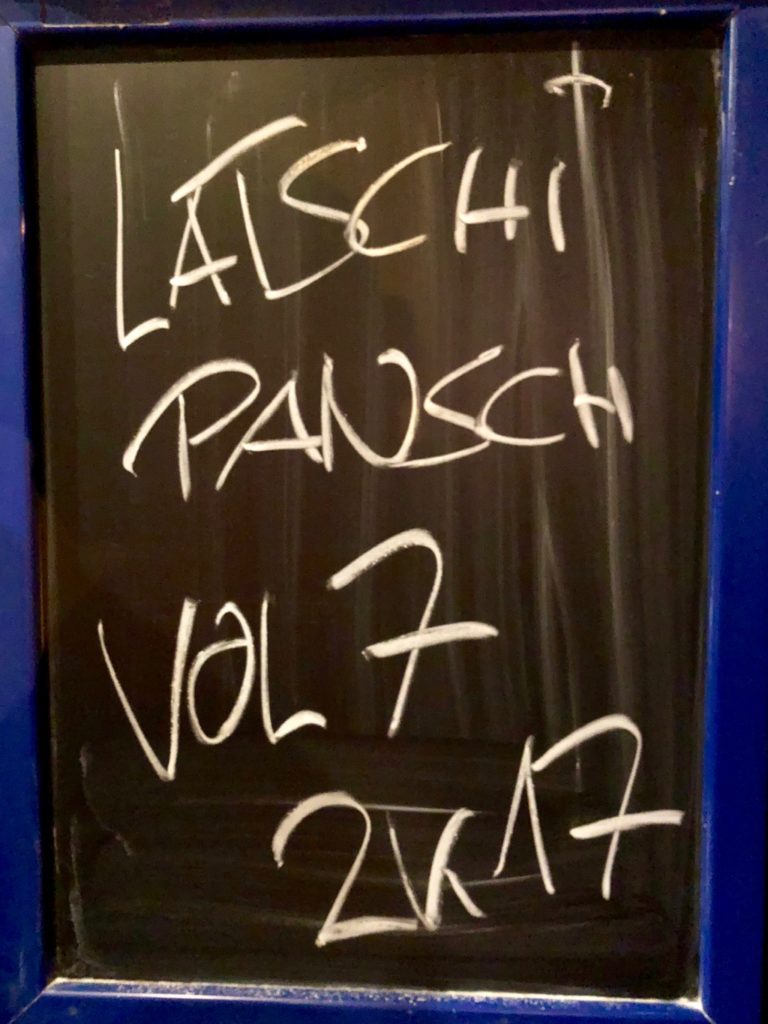 LATSCHI
PANSCH
VOL 7
2K17